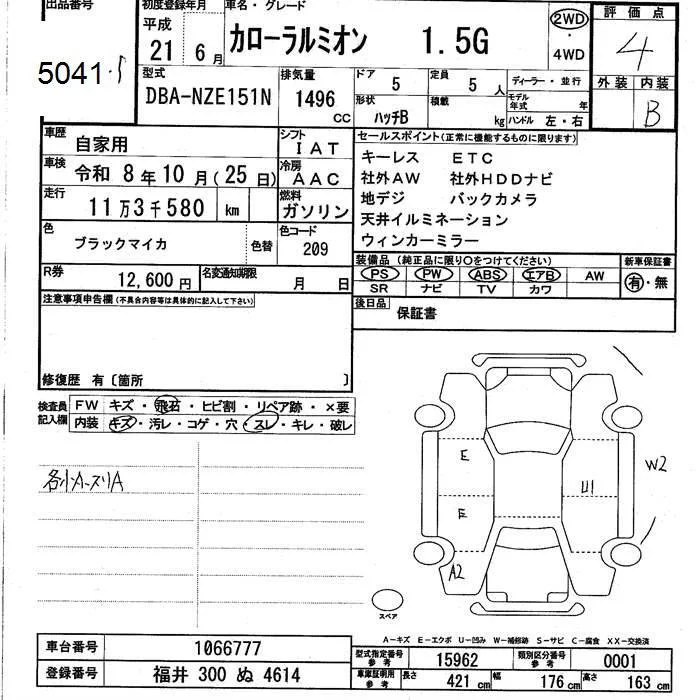 出品番号 初度登録年月 車名・グレード 評価点
5041 平成 21 年 6 月 カローラルミオン 1.5G 2WD・4WD 4
型式 排気量 ドア 定員 ディーラー・並行 外装 内装
DBA-NZE151N 1496 CC 5 5 人 モデル年式 年 B
形状 積載 ハッチB kg ハンドル 左・右
車歴 自家用 シフト IAT セールスポイント(正常に機能するものに限ります)
車検 令和 8 年 10 月 (25 日) 冷房 AAC キーレス ETC
走行 11万3千580 km 燃料 ガソリン 社外AW 社外HDDナビ
地デジ バックカメラ
色 ブラックマイカ 色替 色コード 209 天井イルミネーション
ウィンカーミラー
R券 12,600 円 名変通知期限 月 日 装備品 (純正品に限り〇をつけてください) 新車保証書
PS PW ABS エアB AW 有・無
SR ナビ TV カワ
注意事項申告欄 (不具合内容等は具体的に記入して下さい) 後日品 保証書
修復歴 有〔箇所 〕
検査員記入欄 FW キズ・飛石・ヒビ割・リペア跡・×要
内装 キズ・汚レ・コゲ・穴・スレ・キレ・破レ
E U1 W2
各小A・スリA
E
A2
スペア
A-キズ E-エクボ U-凹み W-補修跡 S-サビ C-腐食 XX-交換済
車台番号 1066777 型式指定番号 参考 15962 類別区分番号 参考 0001
登録番号 福井 300 ぬ 4614 車庫証明用 参考 長さ 421 cm 幅 176 cm 高さ 163 cm